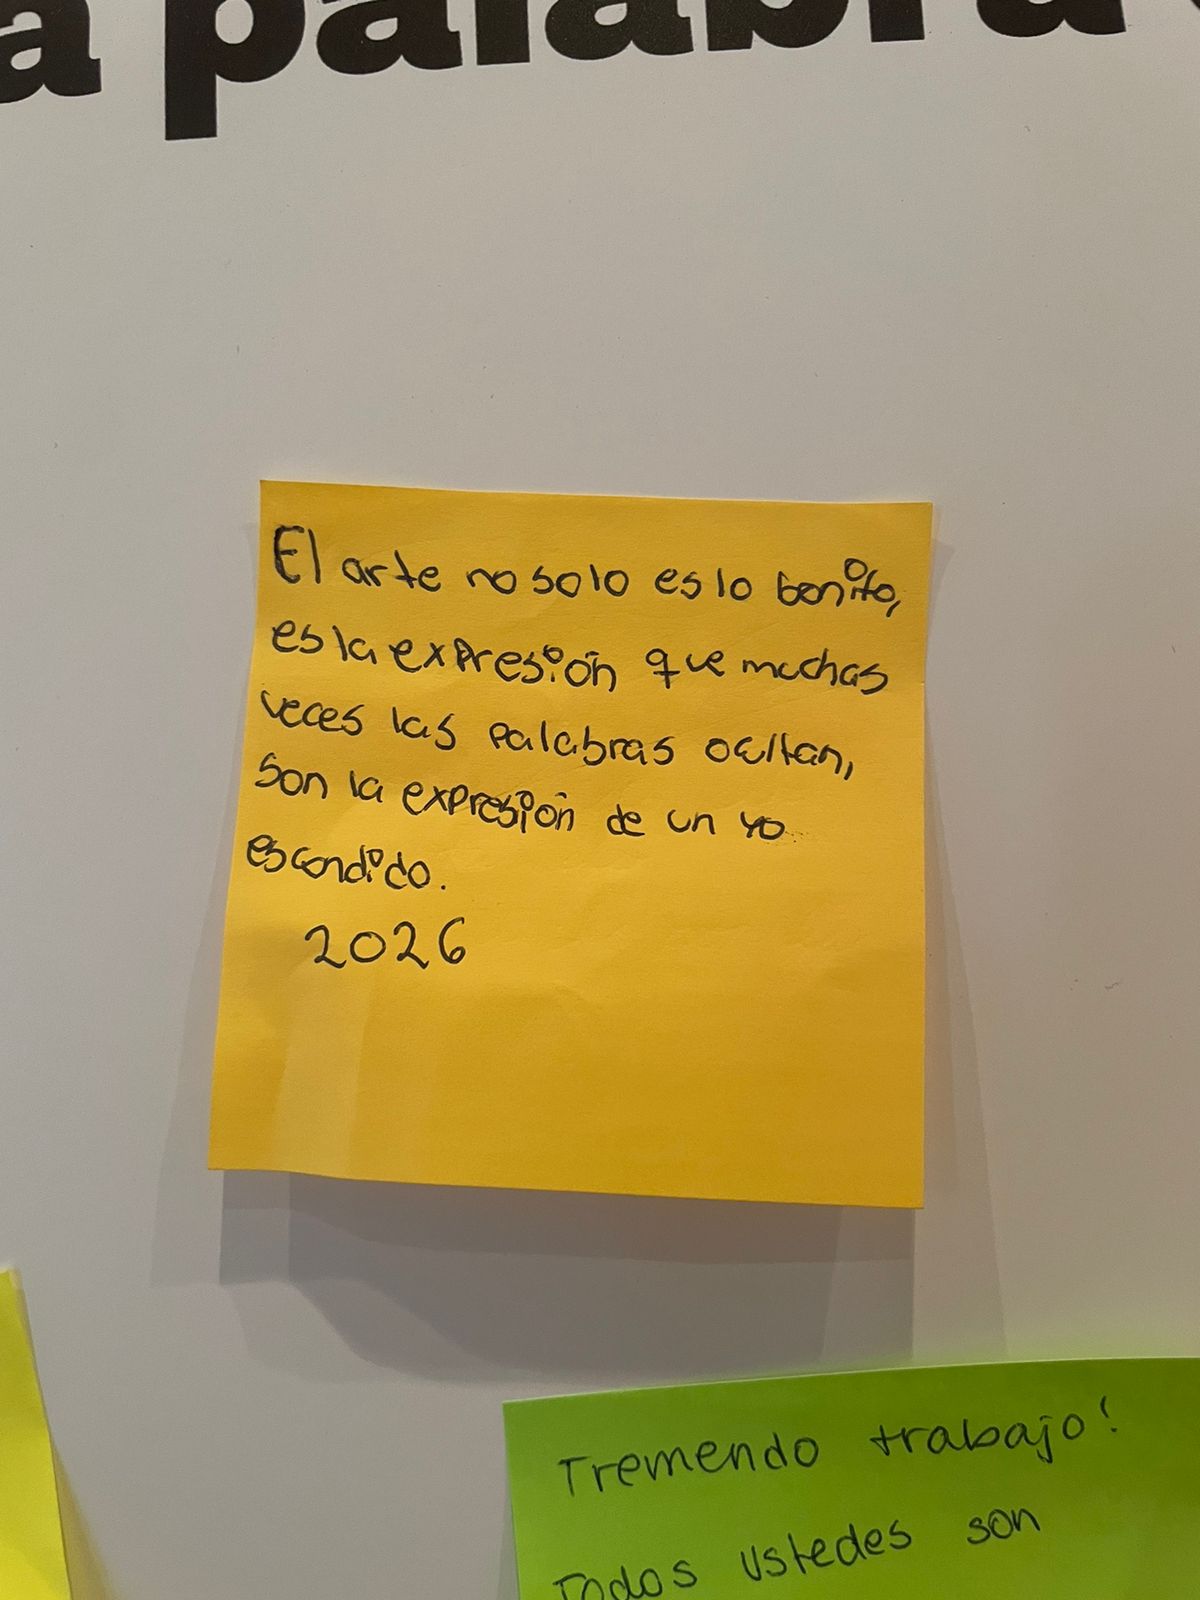 a palabra
El arte no solo es lo bonito,
es la expresión que muchas
veces las palabras ocultan,
son la expresión de un yo
escondido.
2026
Tremendo trabajo!
Todos ustedes son